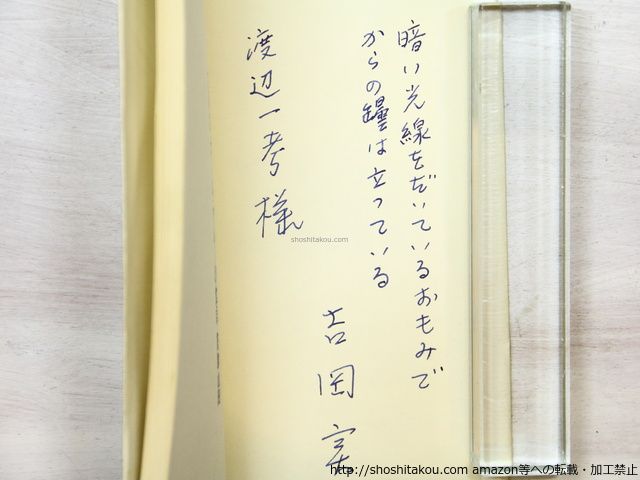 暗い光線をだいているおもみで
からの罎は立っている
吉岡実
渡辺一考様
shoshitakou.com
http://shoshitakou.com amazon等への転載・加工禁止